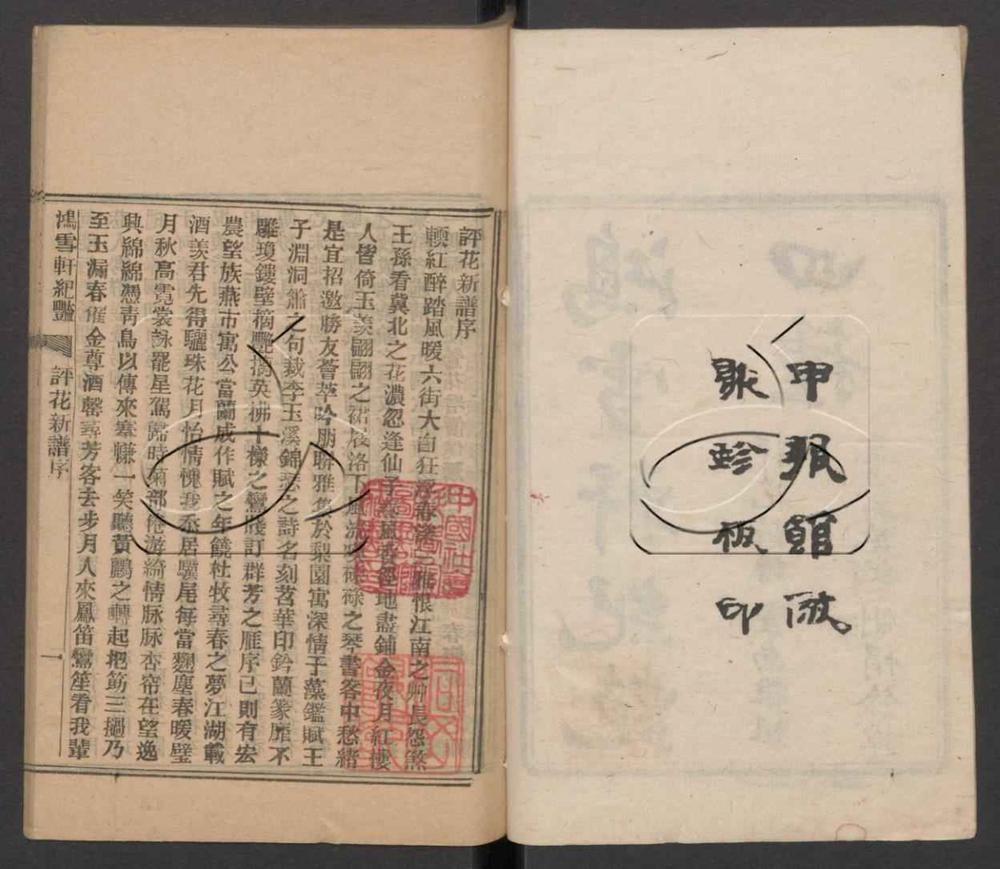 申報館仿
聚珍板印
評花新譜序
輭紅醉踏風暖六街大白狂浮春深一雁恨江南之艸長怨煞
王孫看冀北之花濃忽逢仙子春風香徑地盡鋪金夜月紅樓
人皆倚玉羨翩翩之裙屐洛下風流感碌碌之琴書客中愁緒
是宜招邀勝友薈萃吟朋聯雅集於梨園寓深情于藻鑑賦王
子淵洞簫之句裁李玉溪錦瑟之詩名刻苕華印鈐蘭篆靡不
雕瓊鏤璧摘艷搴英拂十樣之鸞牋訂群芳之雁序已則有宏
農望族燕市寓公當蘭成作賦之年饒杜牧尋春之夢江湖載
酒羨君先得驪珠花月怡情愧我忝居驥尾每當麴塵春暖璧
月秋高霓裳詠罷星駕歸時菊部倦游綺情脉脉杏帘在望逸
興綿綿憑青鳥以傳來搴嫌一笑聽黃鸝之囀起把筯三撾乃
至玉漏春催金尊酒罄尋芳客去步月人來鳳笛鸞笙看我輩
鴻雪軒紀豔
評花新譜序
一